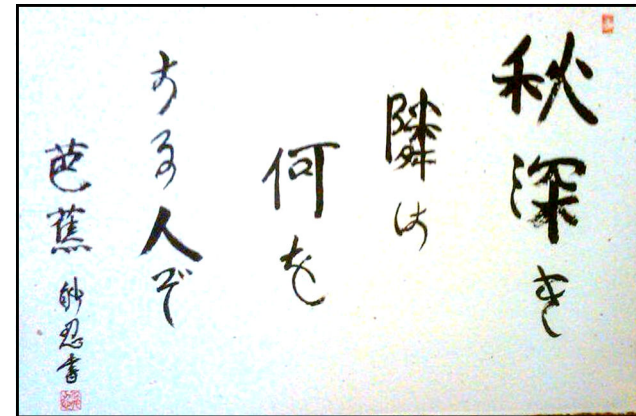 秋深き
隣は
何を
する人ぞ
芭蕉 妙忍書